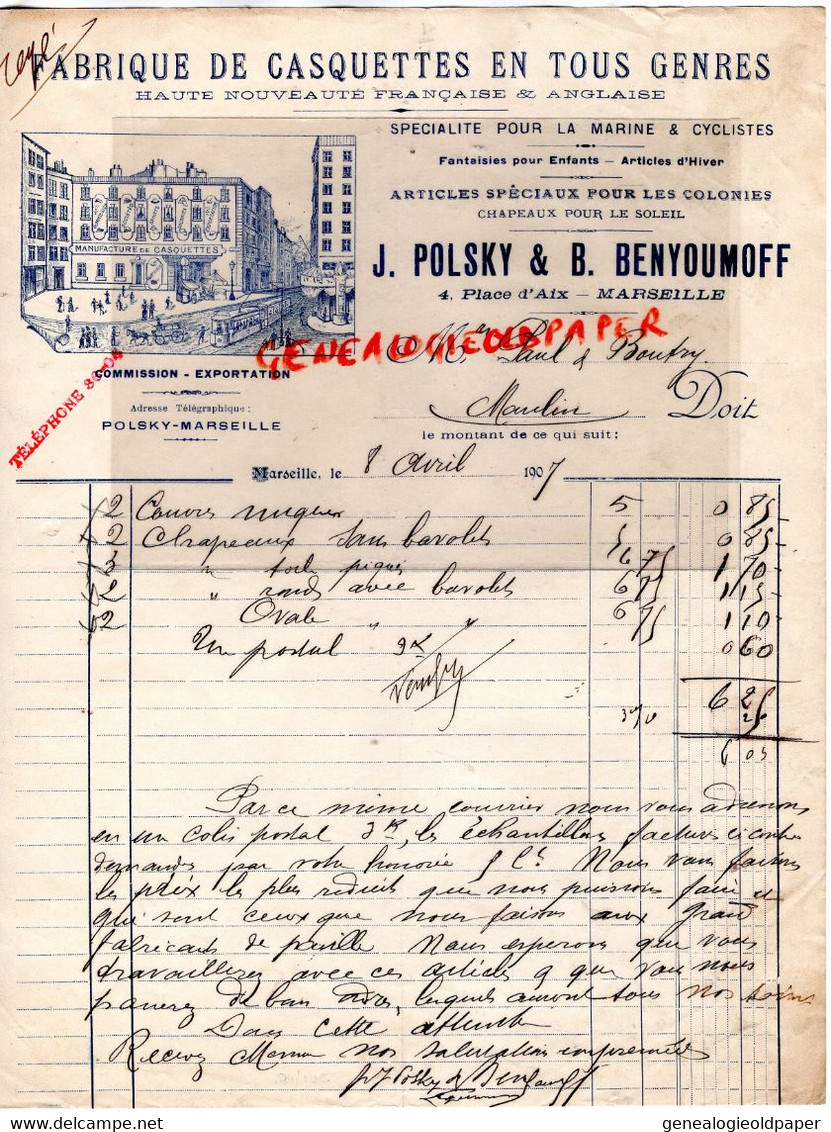 FABRIQUE DE CASQUETTES EN TOUS GENRES
HAUTE NOUVEAUTÉ FRANÇAISE & ANGLAISE
SPECIALITE POUR LA MARINE & CYCLISTES
Fantaisies pour Enfants – Articles d'Hiver
ARTICLES SPÉCIAUX POUR LES COLONIES
CHAPEAUX POUR LE SOLEIL
MANUFACTURE DE CASQUETTES
J. POLSKY & B. BENYOUMOFF
4, Place d'Aix – MARSEILLE
GENEALOGIEOLDPAPER
Paul & Boutry
COMMISSION - EXPORTATION
TÉLÉPHONE
Adresse Télégraphique:
POLSKY-MARSEILLE
Moulin Doit
le montant de ce qui suit:
Marseille, le 8 Avril 1907
2 Couvres nuques 5 0 85
2 Chapeaux sans bavolets 5 0 85
3 " toile piqué 6 75 1 70
2 " ronds avec bavolets 6 75 1 15
2 Ovale " " 6 75 1 10
Un postal 3K 0 60
6 25
3 %
6 05
Par ce même courrier nous vous adressons
en un colis postal 3K, les échantillons facturés ci contre
demandés par votre honorée Nous vous faisons
les prix les plus reduits que nous puissions faire et
qui sont ceux que nous faisons aux grands
fabricants de paille Nous esperons que vous
travaillerez avec ces articles que vous nous
passerez de bons ordres, lesquels auront tous nos soins
Dans cette attente
Recevez Messieurs nos salutations empressées
Polsky & Benyoumoff
genealogieoldpaper